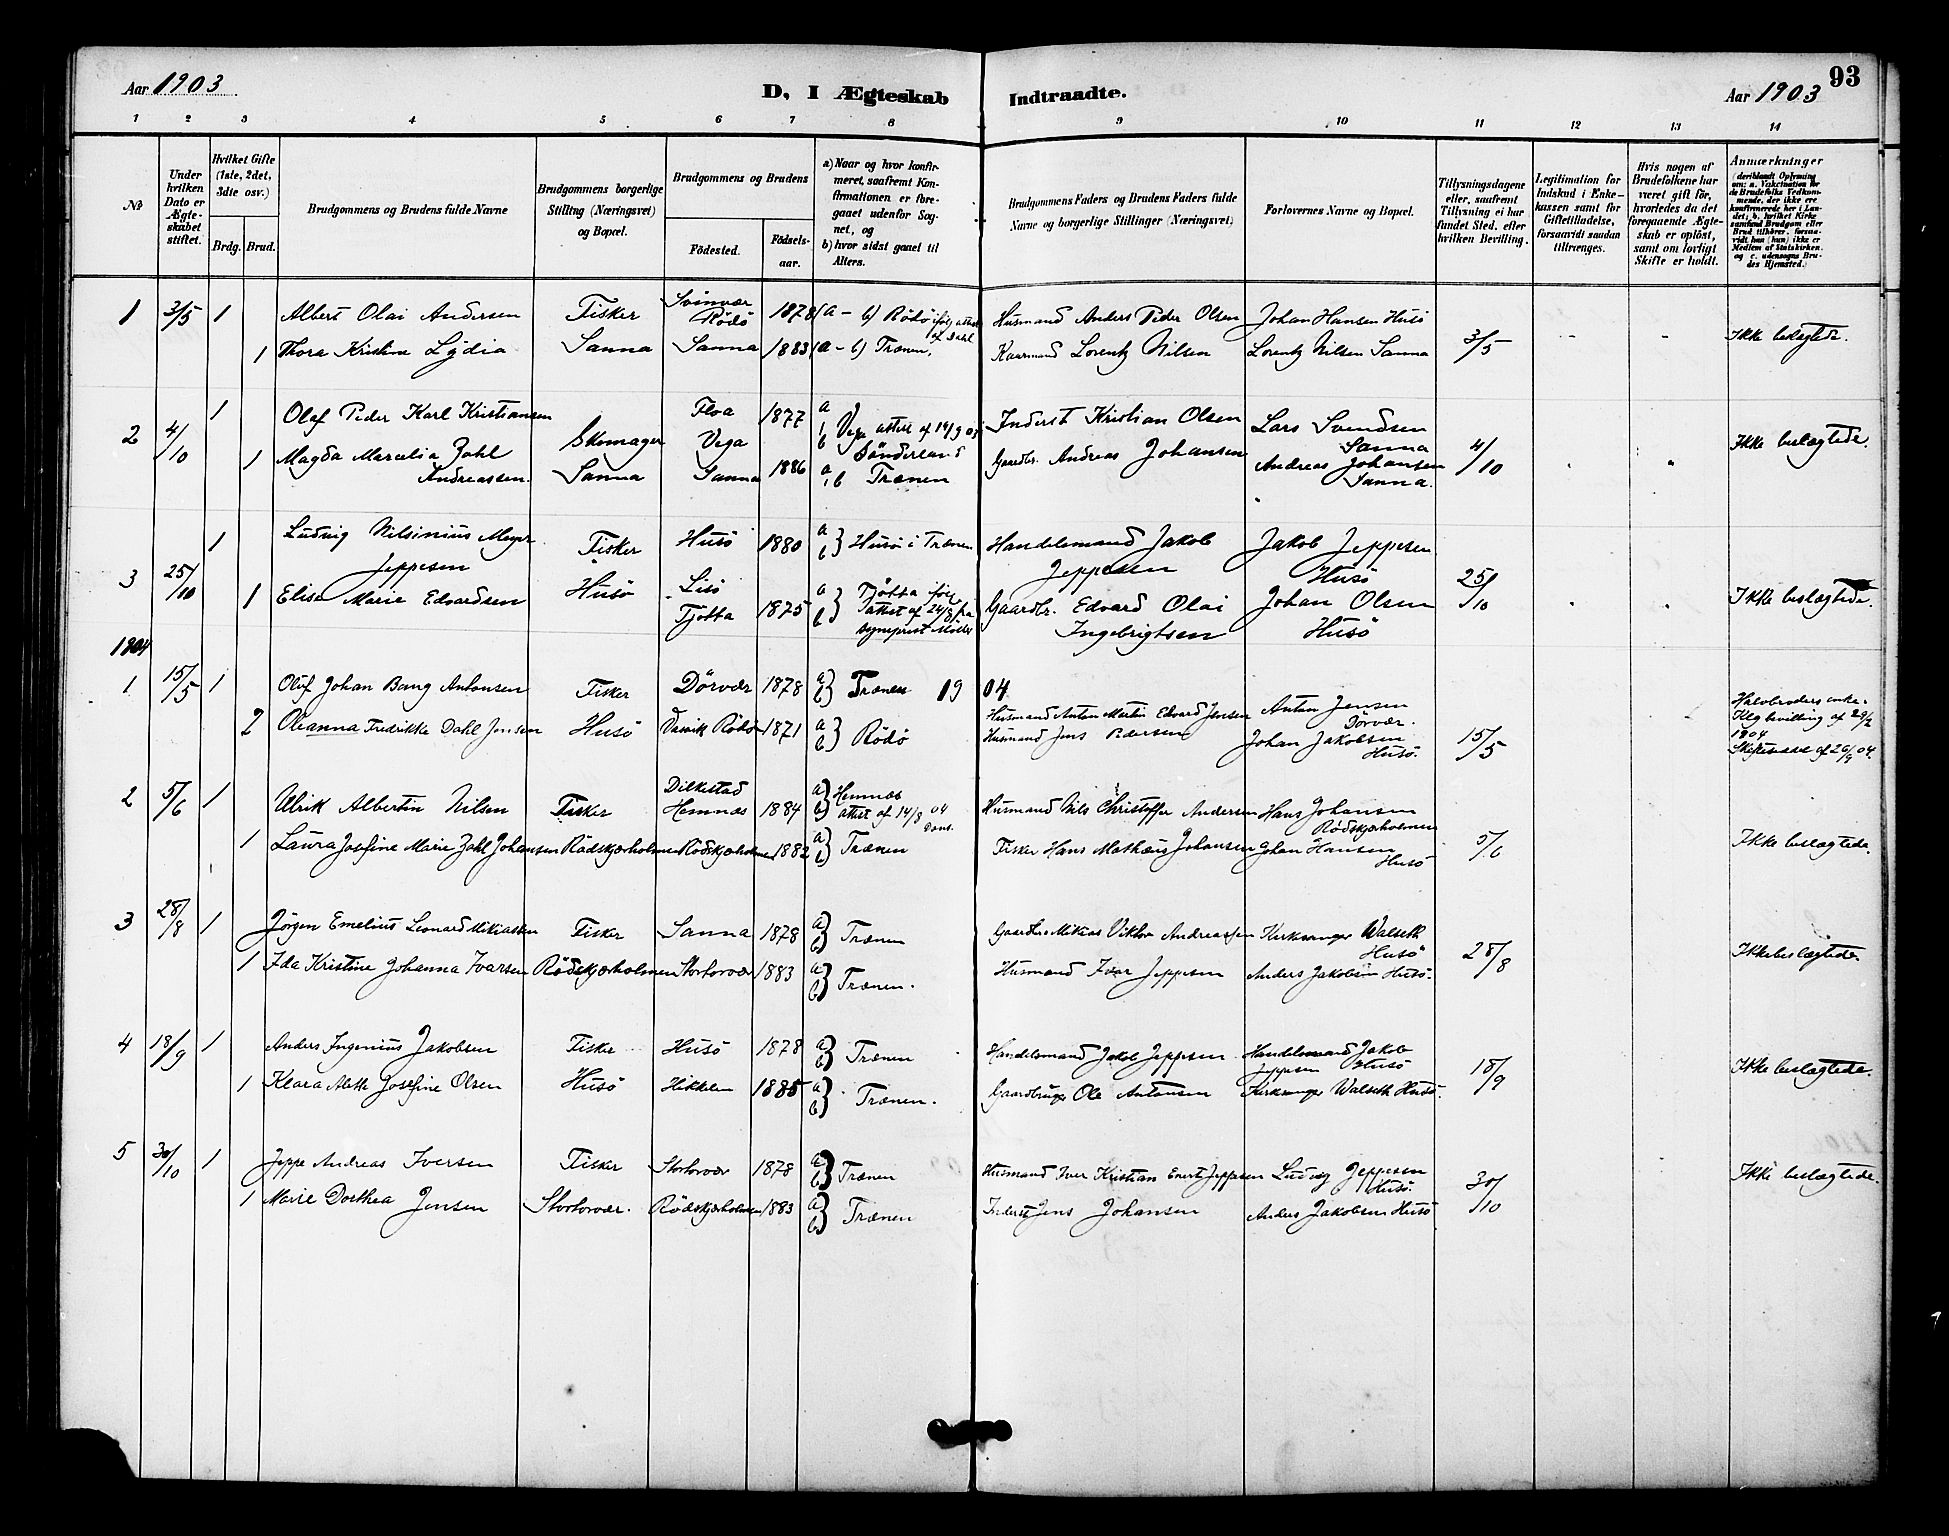 Aar 1903
D, I Ægteskab Indtraadte.
Aar 1903
93
1 2 3 4 5 6 7 8 9 10 11 12 13 14
№
Under hvilken Dato er Ægteskabet stiftet.
Hvilket Gifte (1ste, 2det, 3die osv.)
Brdg. Brud.
Brudgommens og Brudens fulde Navne
Brudgommens borgerlige Stilling (Næringsvei) og Bopæl.
Brudgommens og Brudens
Fødested.
Fødselsaar.
a) Naar og hvor konfirmeret, saafremt Konfirmationen er foregaaet udenfor Sognet, og
b) hvor sidst gaaet til Alters.
Brudgommens Faders og Brudens Faders fulde Navne og borgerlige Stillinger (Næringsvei)
Forlovernes Navne og Bopæl.
Tillysningsdagene eller, saafremt Tillysning ei har fundet Sted, efter hvilken Bevilling.
Legitimation for Indskud i Enkekassen samt for Giftetilladelse, forsaavidt saadan tiltrænges.
Hvis nogen af Brudefolkene har været gift før, hvorledes da det foregaaende Ægteskab er opløst, samt om lovligt Skifte er holdt.
Anmærkninger (deriblandt Oplysning om: a. Vakcination for de Brudefolks Vedkommende, der ikke ere konfirmerede her i Landet; b. hvilket Kirkesamfund Brudgom eller Brud tilhører, forsaavidt han (hun) ikke er Medlem af Statskirken, og c. udensogns Brudes Hjemsted.)
1 3/5 1 Albert Olai Andersen Fisker Svinvær Rödö 1878 (a - b) Rödö ifølg attest af Dahl Husmand Anders Peder Olsen Johan Hansen Husö
1 Thora Kristine Lydia Sanna Sanna 1883 (a - b) Trænen, Lorentz Nilsen Lorentz Nilsen Sanna 3/5 - - Ikke beslægtede.
2 4/10 1 Olaf Peder Karl Kristiansen Skomager Floa Vega 1877 a b Vega attest af 14/9 03 Sönderland Inderst Kristian Olsen Lars Svendsen Sanna
1 Magda Marcelia Zahl Andreassen. Sanna Sanna 1886 a b Trænen Gaardbr. Andreas Johansen Andreas Johansen Sanna. 4/10 Ikke beslægtede.
3 25/10 1 Ludvig Nilsinius Meyer Jeppesen Fisker Husö 1880 a b } Husö i Trænen Handelsmand Jakob Jeppesen Jakob Jeppesen Husö
1 Elise Marie Edvardsen Husö Lisö Tjøtta 1875 a b } Tjøtta ifølg attest af 24/8 fra sogneprest Gaardbr. Edvard Olai Ingebrigtsen Johan Olsen Husö 25/10 Ikke beslægtede.
1904
1 15/5 1 Oluf Johan Bang Antonsen Fisker Dörvær 1878 a b } Trænen 1904 Husmand Anton Martin Edvard Jensen Anton Jensen Dörvær.
2 Oleanna Fredrikke Dahl Jensen Husö Rödö 1871 a b } Rödö Husmand Jens Pedersen Johan Jakobsen Husö. 15/5 Halvbroders enke. Klg bevilling af 29/2 1904
2 5/6 1 Ulrik Albertin Nilsen Fisker Dilkestad Hemnæs 1884 a b } Hemnæs attest af 14/8 04 Husmand Nils Christoffer Andersen Hans Johansen Rödskjærholmen
1 Laura Josfine Marie Zahl Johansen Rödskjærholmen Rödskjærholmen 1882 a b } Trænen Fisker Hans Mathæus Johansen Johan Hansen Husö 5/6 Ikke beslægtede.
3 28/8 1 Jörgen Emelius Leonard Mikiassen Fisker Sanna 1878 a b } Trænen Gaardbr. Mikias Viktor Andreassen Kirkesanger Walseth Husö
1 Ida Kristine Johanna Ivarsen Rödskjærholmen Stortorvær 1883 a b } Trænen. Husmand Ivar Jeppesen Anders Jakobsen Husö. 28/8 Ikke beslægtede.
4 18/9 1 Anders Ingenius Jakobsen Fisker Husö 1878 a b } Trænen Handelsmand Jakob Jeppesen Handelsmand Jakob Jeppesen Husö
1 Klara Aleth Josefine Olsen Husö Hikkelen 1885 a b } Trænen. Gaardbruger Ole Antonsen Kirkesanger Walseth Husö. 18/9 Ikke beslægtede.
5 30/10 1 Jeppe Andreas Iversen Fisker Stortorvær 1878 a b } Trænen Husmand Iver Kristian Enert Jeppesen Ludvig Jeppesen Husö.
1 Marie Dorthea Jensen Stortorvær. Rödskjærholmen 1883 a b } Trænen Inderst Jens Johansen Anders Jakobsen Husö 30/10 Ikke beslægtede.